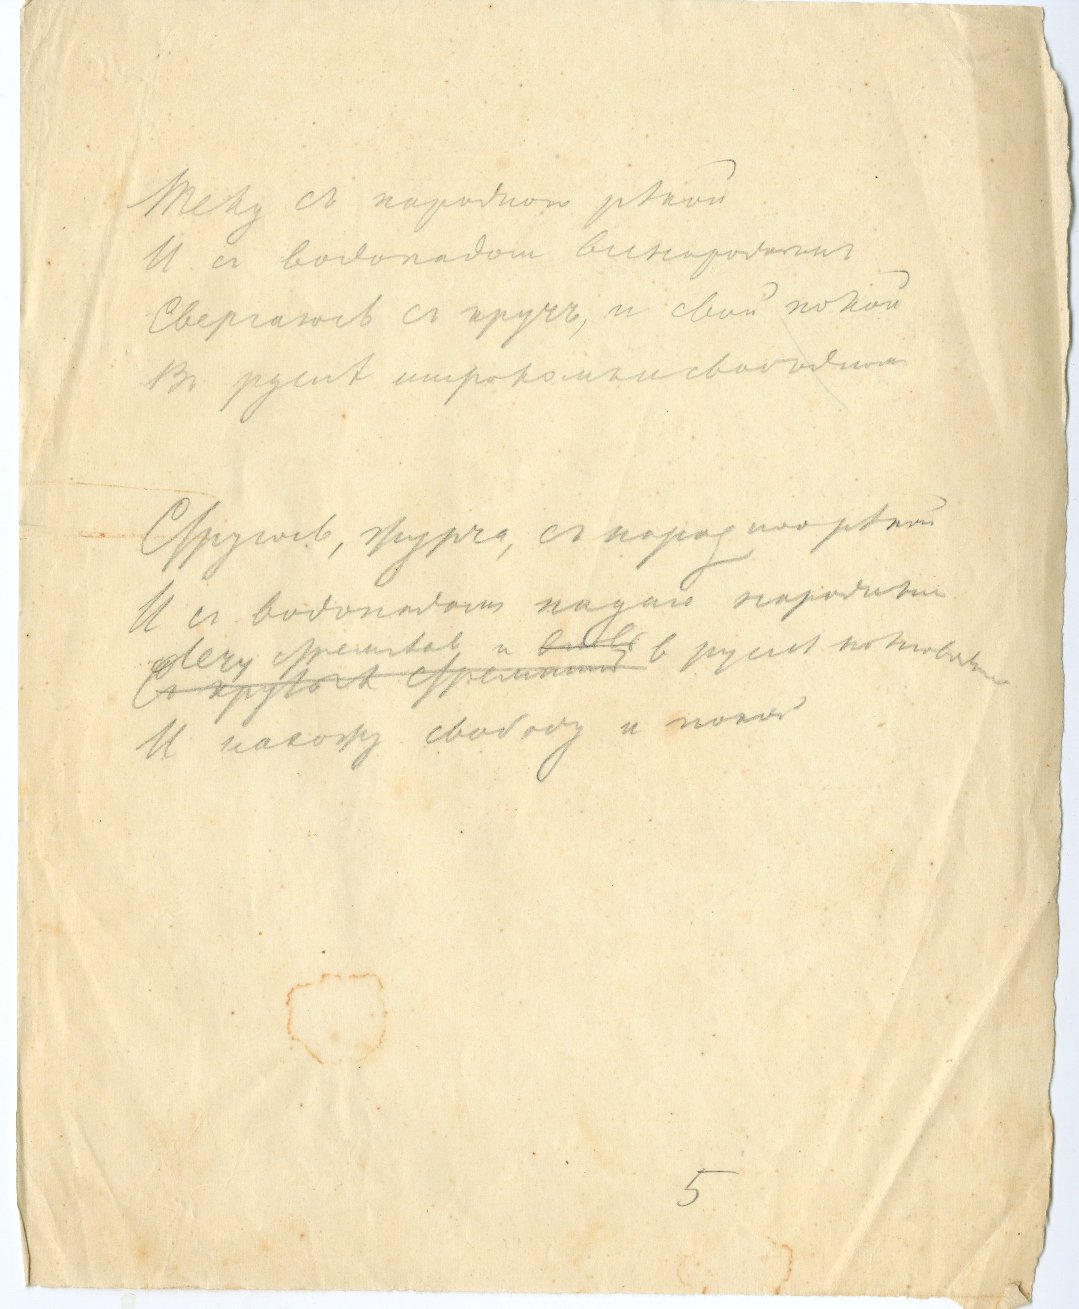 Теку съ народною рѣкой
И съ водопадом всенароднымъ
Свергаюсь съ кручъ, и свой покой
Въ руслѣ широкомъ и свободном
Струюсь, журча, с народною рѣкой
И съ водопадом падаю народным
Лечу стремглав и в руслѣ
Съ крутых стремнин
И нахожу свободу и покой
5